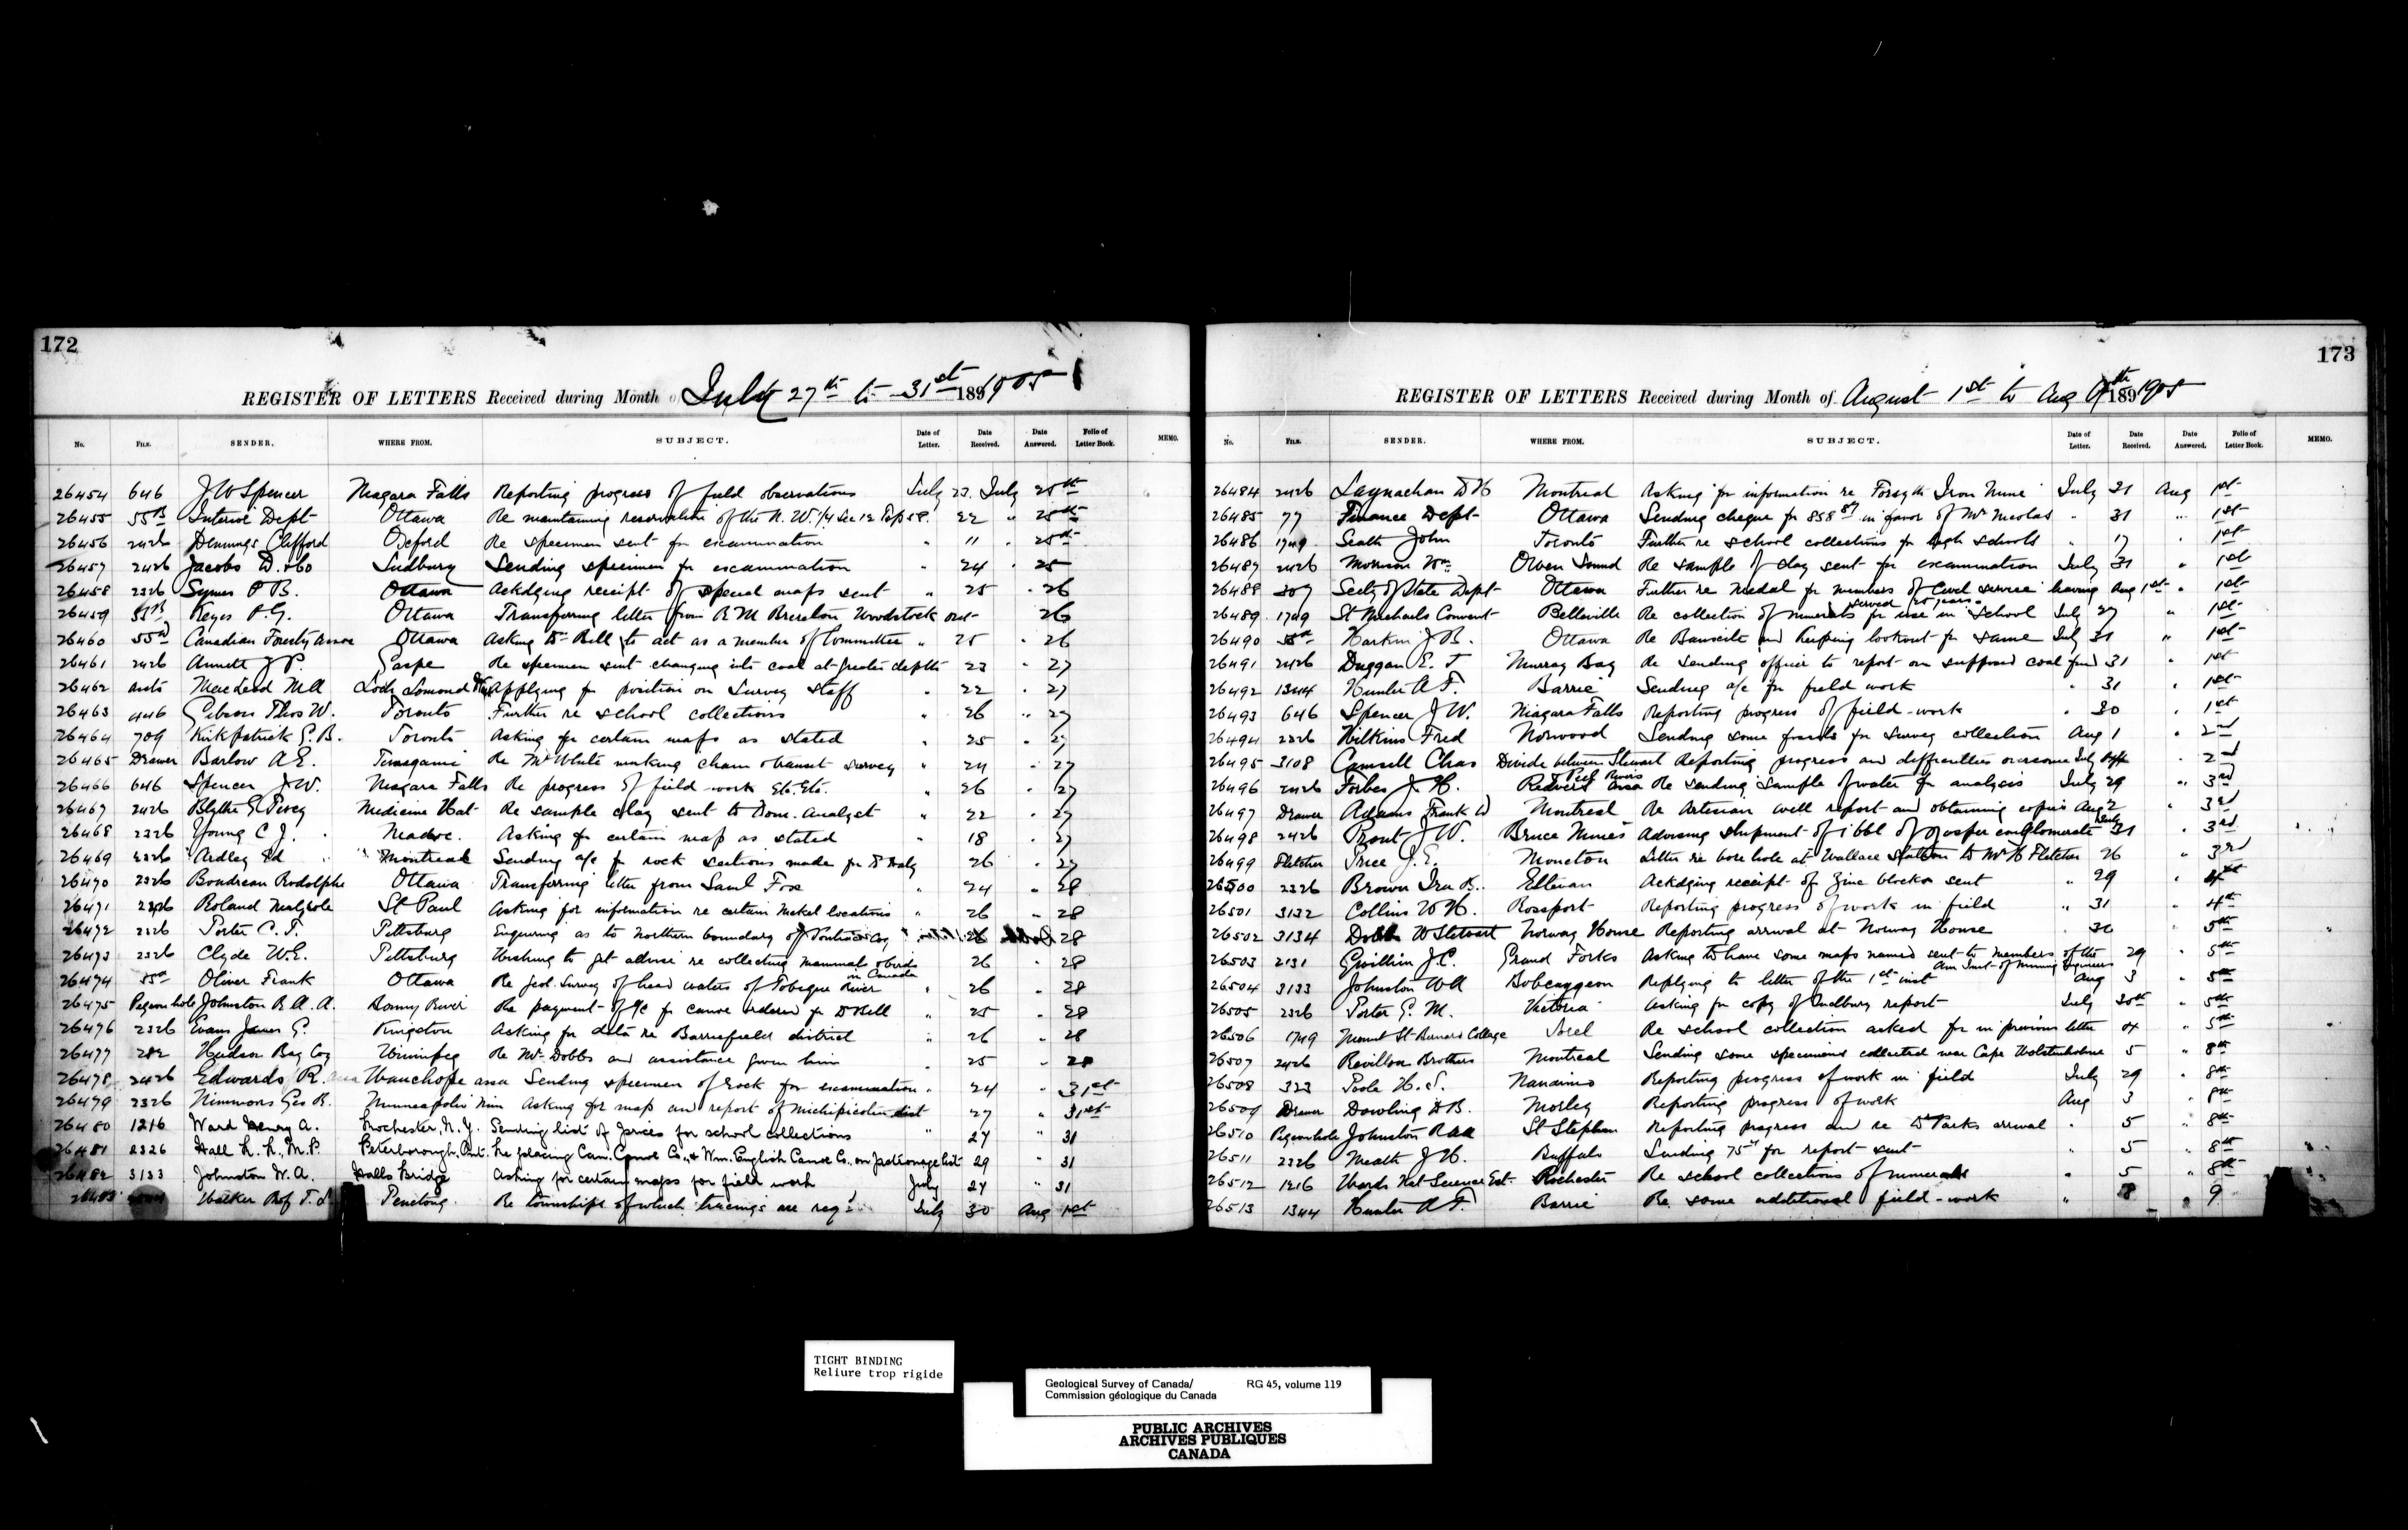 172
REGISTER OF LETTERS Received during Month of July 27th to 31st 1891905
No. FILE. SENDER. WHERE FROM. SUBJECT. Date of Letter. Date Received. Date Answered. Folio of Letter Book. MEMO.
26454 646 J W Spencer Niagara Falls Reporting progress of field observations July 23. July 25th
26455 55B Interior Dept Ottawa Re maintaining reservation of the N. W. 1/4 Sec 12 Tp 22 " 25th
26456 2426 Dennings Clifford Oxford Re specimen sent for examination " 11 " 25th
26457 2426 Jacobs D. & Co Sudbury Sending specimen for examination " 24 " 25
26458 2326 Symes P B. Ottawa Ackdging receipt of special maps sent " 25 " 26
26459 55B Keyes P. G. Ottawa Transferring letter from R M Brereton Woodstock Ont 26
26460 55a Canadian Forestry Assoc Ottawa Asking Dr Bell to act as a member of Committee " 25 " 26
26461 2426 Annett J P. Gaspe Re specimen sent changing into coal at greater depths 23 " 27
26462 MacLeod M A Loch Lomond Applying for position on Survey staff " 22 " 27
26463 446 Gibson Thos W. Toronto Further re school collections " 26 " 27
26464 709 Kirkpatrick G. B. Toronto Asking for certain maps as stated " 25 " 27
26465 Drawer Barlow A E. Timagami Re Mr White making chain & transit survey " 24 " 27
26466 646 Spencer J W. Niagara Falls Re progress of field work Etc. Etc. " 26 " 27
26467 2426 Blythe G. Percy Medicine Hat Re sample clay sent to Dom. Analyst " 22 " 27
26468 2326 Young C J. Madoc. Asking for certain map as stated " 18 " 27
26469 2326 Ardley Ed Montreal Sending a/c for rock sections made for Dr Daly 26 " 27
26470 2326 Boudreau Rodolphe Ottawa Transferring letter from Saml Fox " 24 " 28
26471 2326 Roland St Paul Asking for information re certain Nickel locations " 26 " 28
26472 2326 Porter C. T. Pittsburg Enquiring as to Northern boundary of Pontiac Co 26 28
26473 2326 Clyde W. E. Pittsburg Wishing to get advice re collecting mammal & birds in Canada 26 " 28
26474 55a Oliver Frank Ottawa Re geol. Survey of head waters of Tobique River " 26 " 28
26475 Pigeonhole Johnston R. A. A. Bonny River Re payment of a/c for canoe ordered for Dr Bell " 25 " 28
26476 2326 Evans James G. Kingston Asking for data re Barriefield district " 26 " 28
26477 282 Hudson Bay Coy Winnipeg Re Mr Dobbs and assistance given him " 25 " 28
26478 2426 Edwards R. Wauchope assa Sending specimen of rock for examination " 24 " 31st
26479 2326 Nimmons Geo B. Minneapolis Min Asking for map and report of Michipicoten dist 27 " 31st
26480 1216 Ward Henry A. Rochester, N. Y. Sending list of prices for school collections " 27 " 31
26481 2326 Hall R. R., M.P. Peterborough, Ont. Re placing Can. Canoe Co., & Wm. English Canoe Co., on patronage list 29 " 31
26482 3133 Johnston W. A. Halls Bridge Asking for certain maps for field work July 27 " 31
26483 Walker Prof T. L. Penetang. Re townships of which tracings are reqd. July 30 Aug 1st
173
REGISTER OF LETTERS Received during Month of August 1st to Aug 9th 1891905
No. FILE. SENDER. WHERE FROM. SUBJECT. Date of Letter. Date Received. Date Answered. Folio of Letter Book. MEMO.
26484 2426 Laynachan D H Montreal Asking for information re Forsyth Iron Mine July 31 Aug 1st
26485 77 Finance Dept Ottawa Sending cheque for 858 87 in favor of Mr Nicolas " 31 " 1st
26486 1749 Seath John Toronto Further re school collections for high schools " 17 " 1st
26487 2426 Morrison Wm Owen Sound Re sample of clay sent for examination July 31 " 1st
26488 307 Secty of State Dept Ottawa Further re Medal for members of Civil service having served years Aug 1st " 1st
26489 1749 St Michaels Convent Belleville Re collection of minerals for use in school July 27 " 1st
26490 55a Harkin J B. Ottawa Re Bauxite and keeping lookout for same July 31 " 1st
26491 2426 Duggan E. J Murray Bay Re sending officer to report on supposed coal find 31 " 1st
26492 1344 Hunter A F. Barrie Sending a/c for field work " 31 " 1st
26493 646 Spencer J W. Niagara Falls Reporting progress of field-work " 30 " 1st
26494 2326 Wilkins Fred Norwood Sending some fossils for Survey collection Aug 1 " 2nd
26495 3108 Camsell Chas Divide between Stewart & Peel Rivers Reporting progress and difficulties overcome July " 2nd
26496 2426 Forbes J H. Redvers Assa Re sending sample of water for analysis July 29 " 3rd
26497 Drawer Adams Frank D Montreal Re Artesian well report and obtaining copies Aug 2 " 3rd
26498 2426 Bout J W. Bruce Mines Advising shipment of 1 bbl of jasper conglomerate July 31 " 3rd
26499 Fletcher Price J. E. Moncton Letter re bore hole at Wallace Station to Mr H Fletcher 26 " 3rd
26500 2326 Brown Ira B. Ackdging receipt of Zinc blocks sent " 29 " 4th
26501 3132 Collins W H. Rossport Reporting progress of work in field " 31 " 4th
26502 3134 Dobbs W Stewart Norway House Reporting arrival at Norway House 30 " 5th
26503 2131 Gwillim J. C. Grand Forks Asking to have some maps named sent to members of the Am Inst of Mining Engineers 29 " 5th
26504 3133 Johnston W A Bobcaygeon Replying to letter of the 1st inst Aug 3 " 5th
26505 2326 Porter G. M. Victoria Asking for copy of Sudbury report July 30th " 5th
26506 1749 Mount St Bernard College Sorel Re school collection asked for in previous letter 04 " 5th
26507 2426 Revillon Brothers Montreal Sending some specimens collected near Cape Wolstenholme 5 " 8th
26508 323 Poole H. S. Nanaimo Reporting progress of work in field July 29 " 8th
26509 Drawer Dowling D B. Morley Reporting progress of work Aug 3 " 8th
26510 Pigeonhole Johnston R A A St Stephen Reporting progress and re Dr Parks arrival " 5 " 8th
26511 2326 Meath J H. Buffalo Sending 75c for report sent " 5 " 8th
26512 1216 Wards Nat Science Est. Rochester Re school collections of minerals " 5 " 8th
26513 1344 Hunter A F. Barrie Re some additional field-work " 8 " 9
TIGHT BINDING
Reliure trop rigide
Geological Survey of Canada/ RG 45, volume 119
Commission géologique du Canada
PUBLIC ARCHIVES
ARCHIVES PUBLIQUES
CANADA